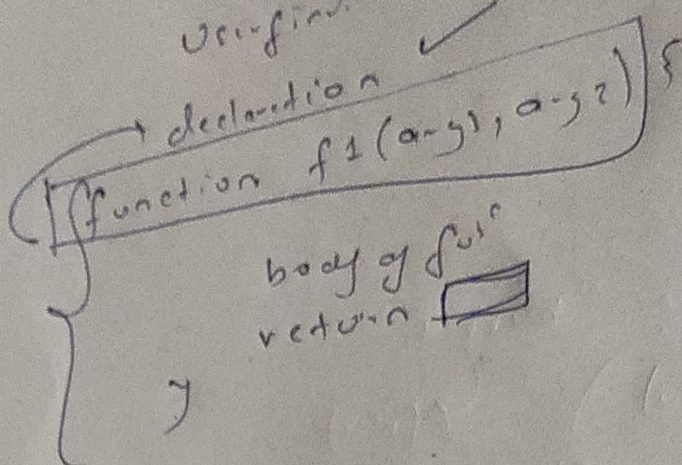 declaration
function f1(arg1, arg2) {
body of func
return
}